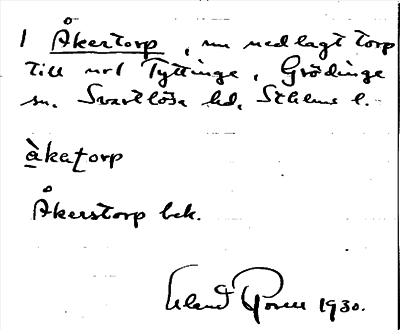 1 Åkertorp, nu nedlagt torp
till nr1 Tyttinge, Grödinge
sn. Svartlösa hd, Sthlms l.
àkatorp
Åkerstorp bek.
Erland Rosell 1930.